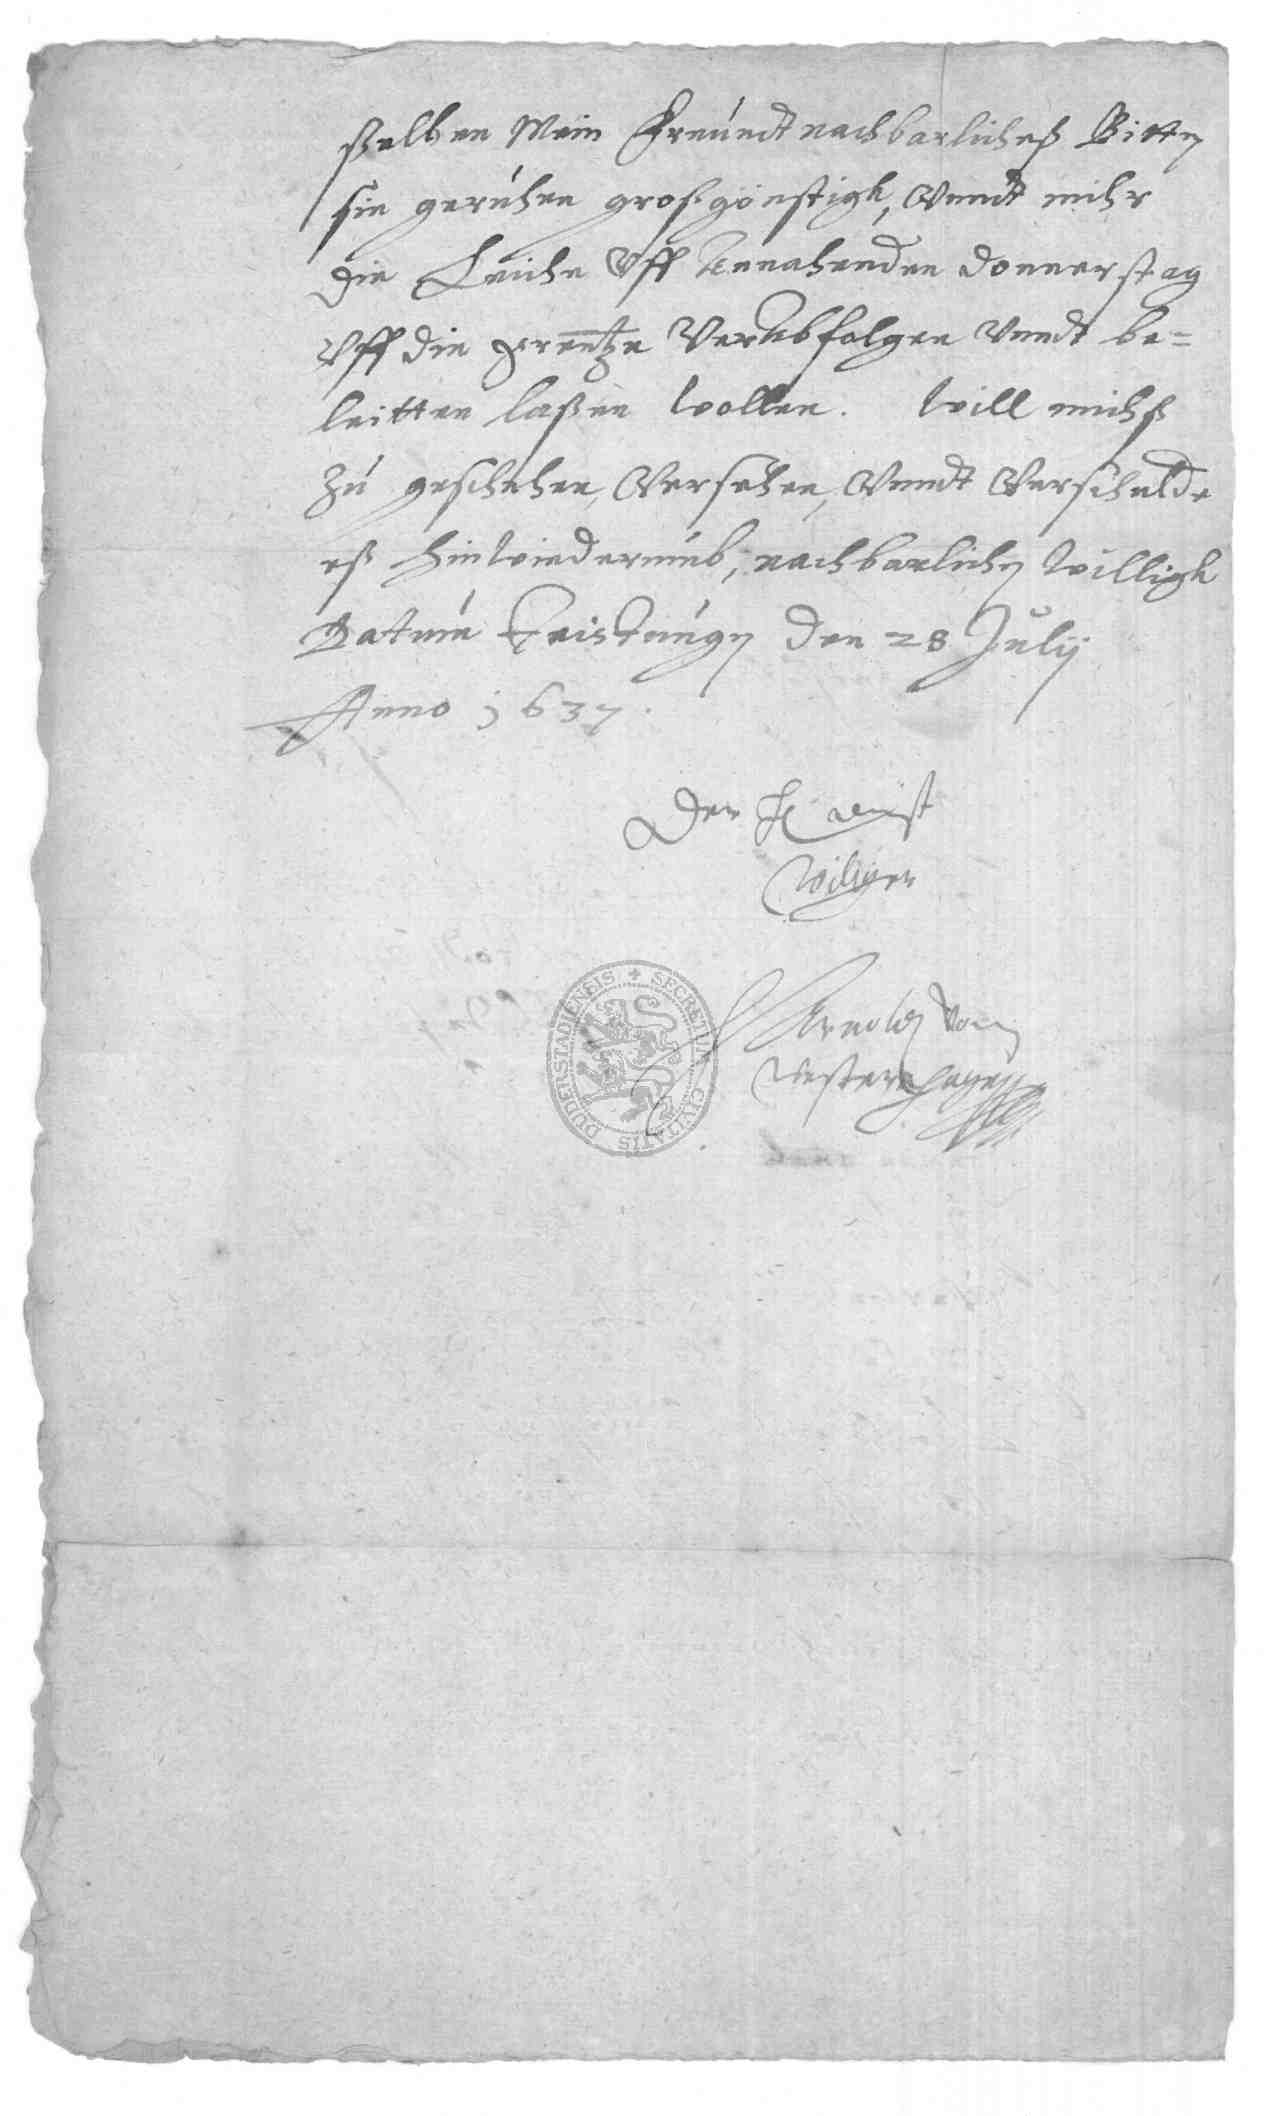 ßelben Mein Freundtnachbarliches Bitten
sie geruhen großgönstigk, Vundt mihr
die Leiche Vff Annahenden donnerstag
Vff die grentze Verabfolgen Vundt be=
leitten laßen wollen. Will michs
zu geschehen, Versehen, Vundt Verschulde
eß hinwiederumb, nachbarlichen willigk
Datum Teistungen den 28 Julij
Anno 1637.
Der H dinst
williger
Arnoldt Von
Westernhagen
SECRETUM CIVITATIS DUDERSTADIENSIS